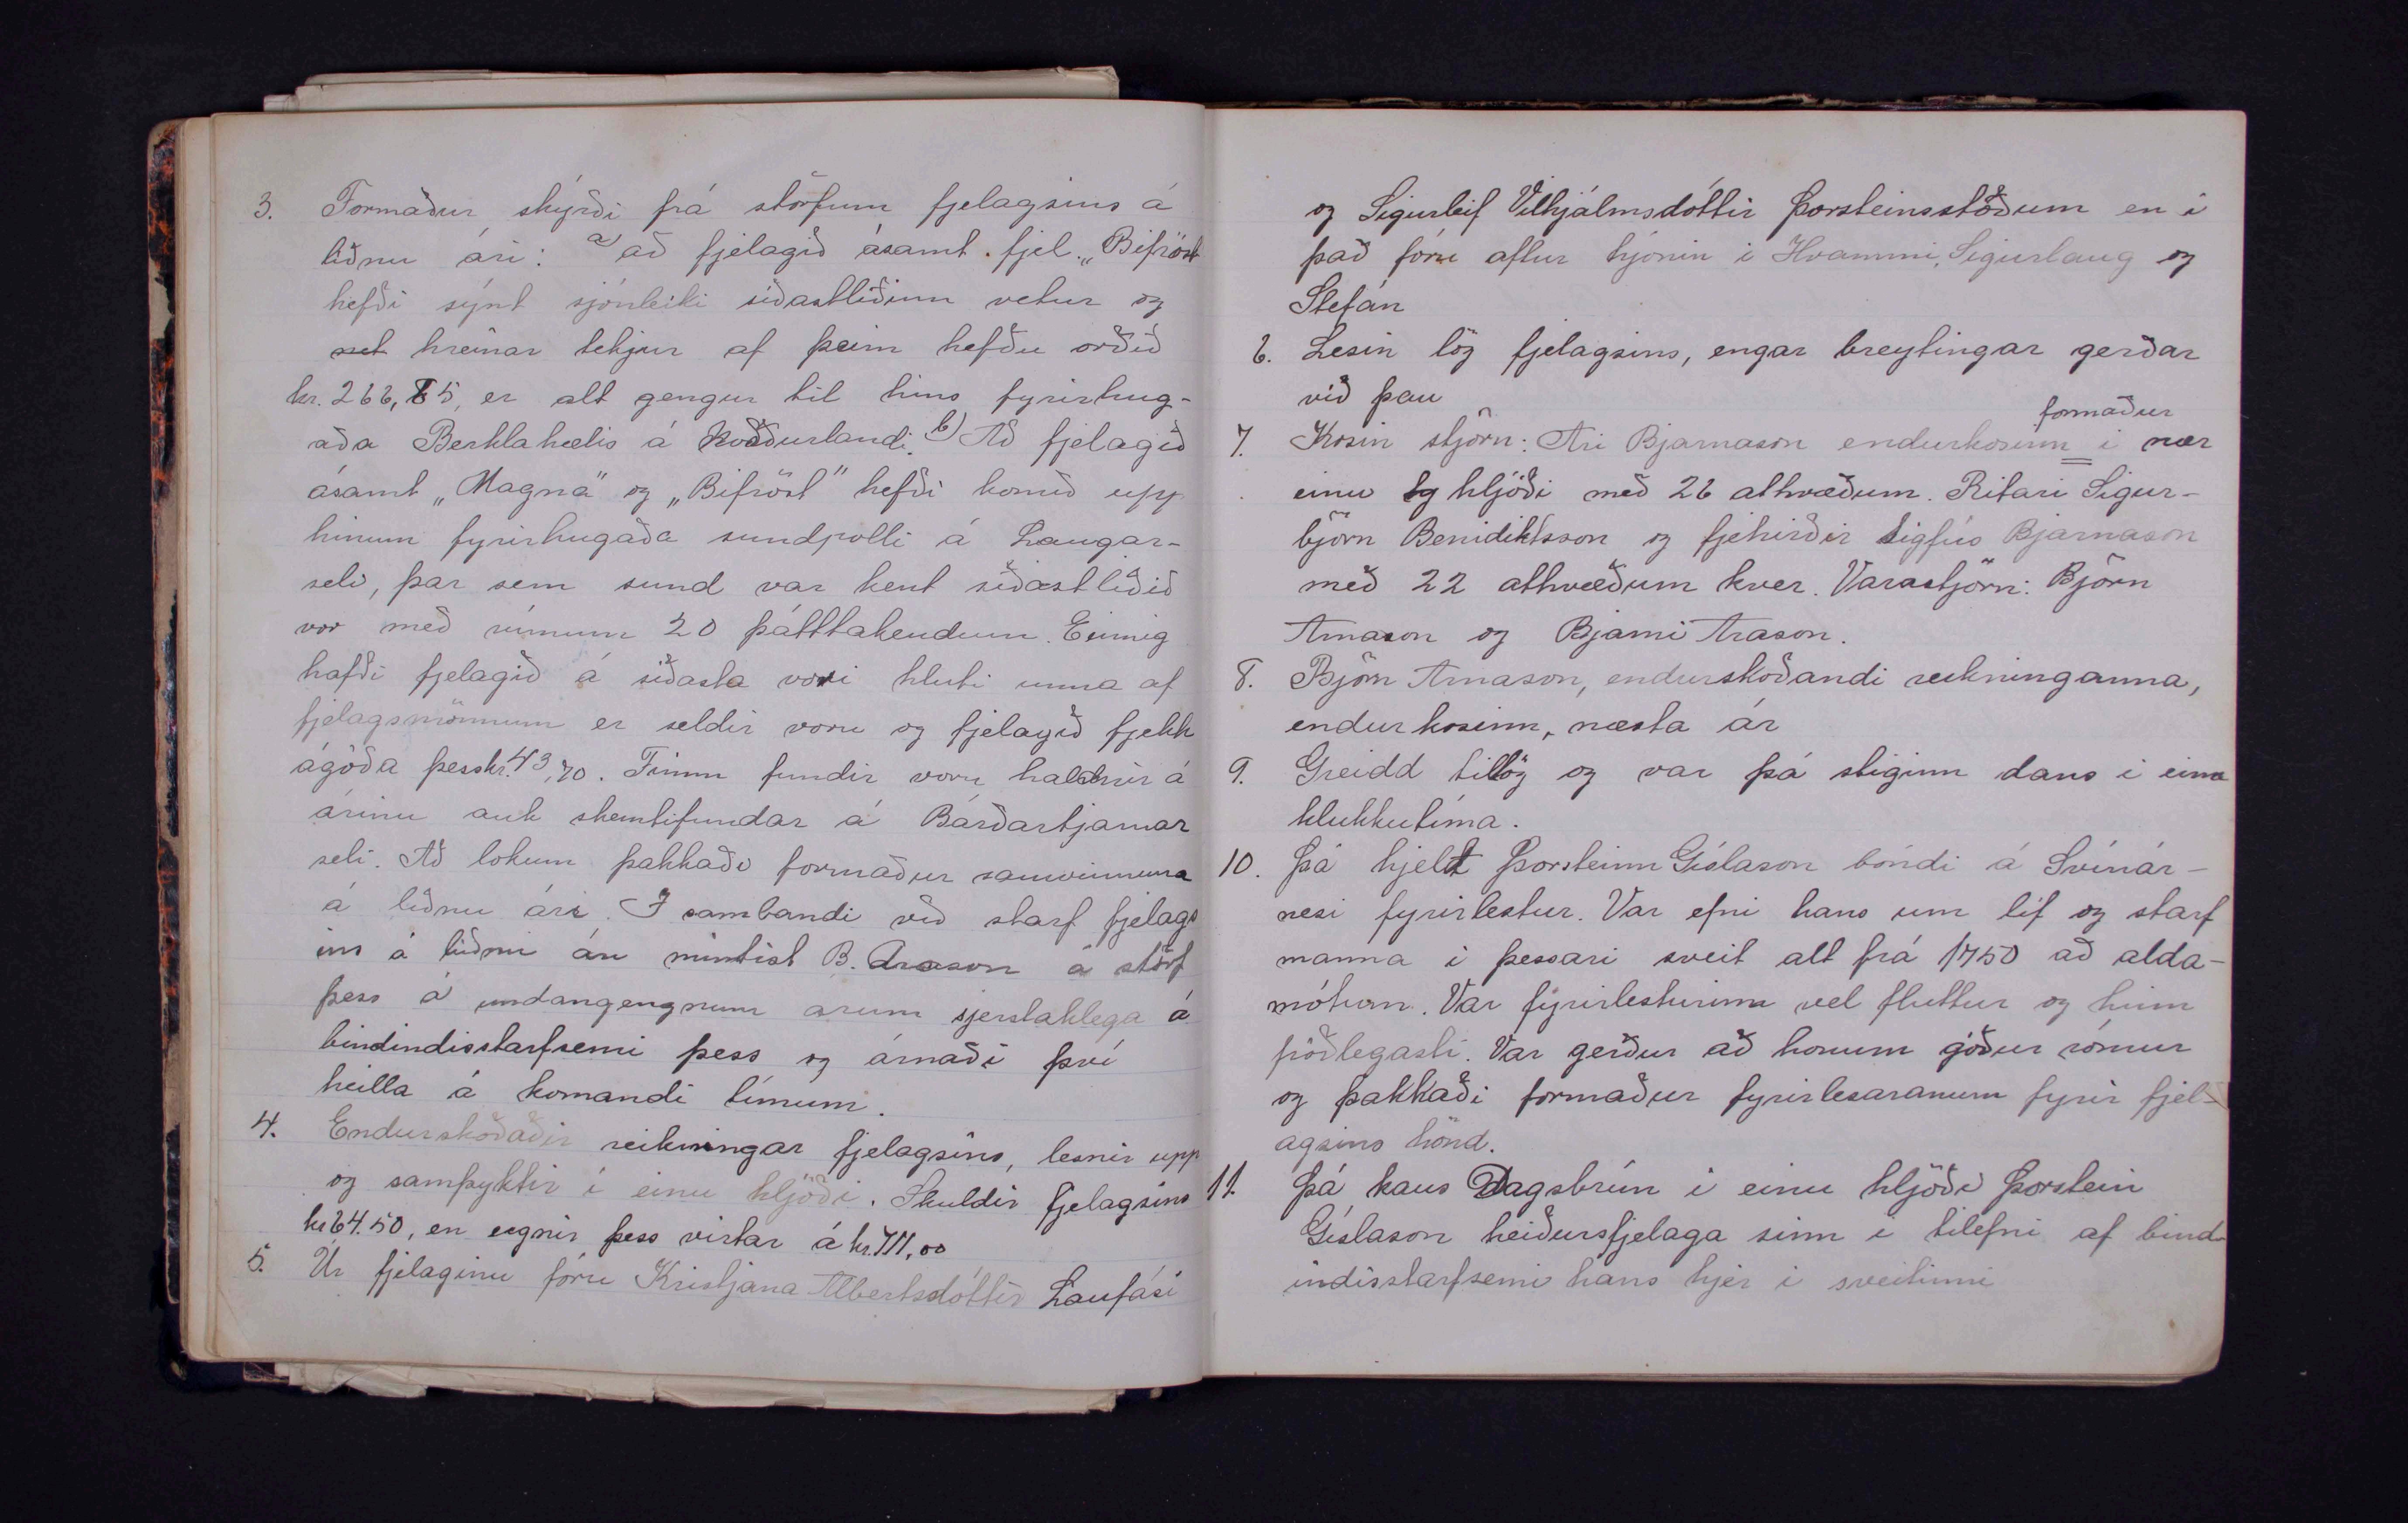 3. Formaður skýrði frá störfum fjelagsins á
liðnu ári: a) að fjelagið ásamt fjel. „Bifröst
hefði sýnt sjónleiki síðastliðinn vetur og
net hreinar tekjur af þeim hefðu orðið
kr. 266,85, er alt gengur til hins fyrirhug-
aða Berklahælis á Norðurlandi. b) Að fjelagið
ásamt „Magna" og „Bifröst" hefði komið upp
hinum fyrirhugaða sundpolli á Laugar-
seli, þar sem sund var kent síðastliðið
vor með rúmum 20 þátttakendum. Einnig
hafði fjelagið á síðasta vori hluti unna af
fjelagsmönnum er seldir voru og fjelagið fjekk
ágóða þess kr. 43,70. Fimm fundir voru haldnir á
árinu auk skemtifundar á Bárðartjarnar
seli. Að lokum þakkaði formaður samvinnuna
á liðnu ári. I sambandi við starf fjelags
ins á liðnu ári mintist B. Arason á störf
þess á undangengnum arum sjerstaklega á
bindindisstarfsemi þess og árnaði því
heilla á komandi tímum.
4. Endurskoðaðir reikningar fjelagsins, lesnir upp
og samþyktir í einu hljóði. Skuldir fjelagsins
kr 64.50, en eignir þess virtar á kr. 711,00
5. Úr fjelaginu fóru Kristjana Albertsdóttir Laufási
og Sigurleif Vilhjálmsdóttir Þorsteinsstöðum en i
það fóru aftur hjónin i Hvammi, Sigurlaug og
Stefán
6. Lesin lög fjelagsins, engar breytingar gerðar
við þau
formaður
7. Kosin stjórn: Ari Bjarnason endurkosinn i nær
einu hljóði með 26 atkvæðum. Ritari Sigur-
björn Benidiktsson og fjehirðir Sigfús Bjarnason
með 22 atkvæðum hver. Varastjórn: Björn
Arnason og Bjarni Arason.
8. Björn Arnason, endurskoðandi reikninganna,
endurkosinn, næsta ár
9. Greidd tillög og var þá stiginn dans i einn
klukkutíma.
10. Þá hjelt Þorsteinn Gíslason bóndi á Svínár-
nesi fyrirlestur. Var efni hans um líf og starf
manna i þessari sveit alt frá 1750 að alda-
mótum. Var fyrirlesturinn vel fluttur og hinn
fróðlegasti. Var gerður að honum góður rómur
og þakkaði formaður fyrirlesaranum fyrir fjel-
agsins hönd.
11. Þá kaus Dagsbrún i einu hljóði Þorstein
Gíslason heiðursfjelaga sinn i tilefni af bind-
indisstarfsemi hans hjer i sveitinni